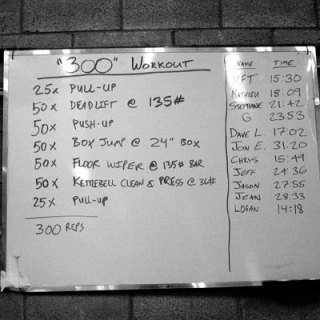 "300" WORKOUT
25x PULL-UP
50x DEADLIFT @ 135#
50x PUSH-UP
50x BOX JUMP @ 24" BOX
50x FLOOR WIPER @ 135# BAR
50x KETTLEBELL CLEAN & PRESS @ 36#
25x PULL-UP
300 REPS
NAME TIME
MFT 15:30
MATHIEU 18:09
STEPHANE 21:42
G 23:53
DAVE L. 17:02
JON E. 31:20
CHRIS 15:49
JEFF 24:36
JASON 27:55
JEAN 28:33
LOGAN 14:18